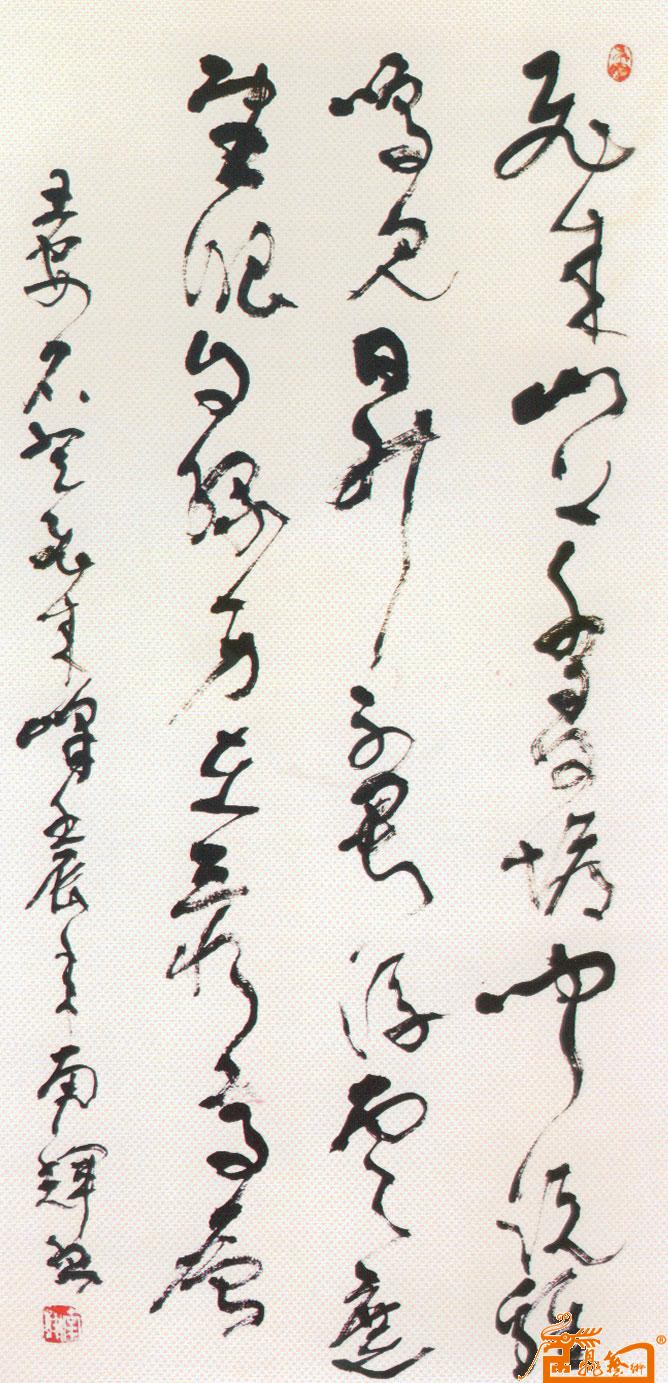 飞来山上千寻塔闻说雞
鸣见日升不畏浮云遮
望眼自缘身在最高层
王安石登飞来峰壬辰年南辉书